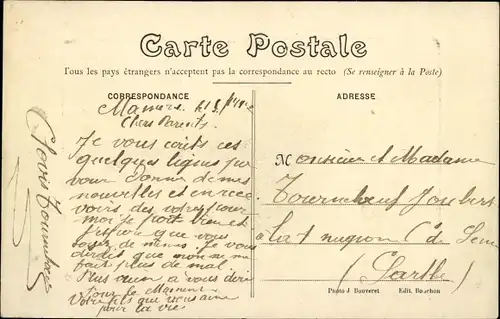 Carte Postale
Tous les pays étrangers n'acceptent pas la correspondance au recto (Se renseigner à la Poste)
CORRESPONDANCE
ADRESSE
Mamers
Chers Parents
Je vous écrits ces
quelques lignes pour
vous donner de mes
nouvelles et en rece
voirs des votres pour
moi je port bien et
j'espère que vous
de mêmes. Je vous
dirais que mon me
fait plus de mal
Plus rien a vous dire
pour le
Votre fils qui vous aime
pour la vie
Clovis
Monsieur et Madame
Tournebœuf Joubert
à
(Sarthe)
Photo J. Bouveret Edit. Bouchon